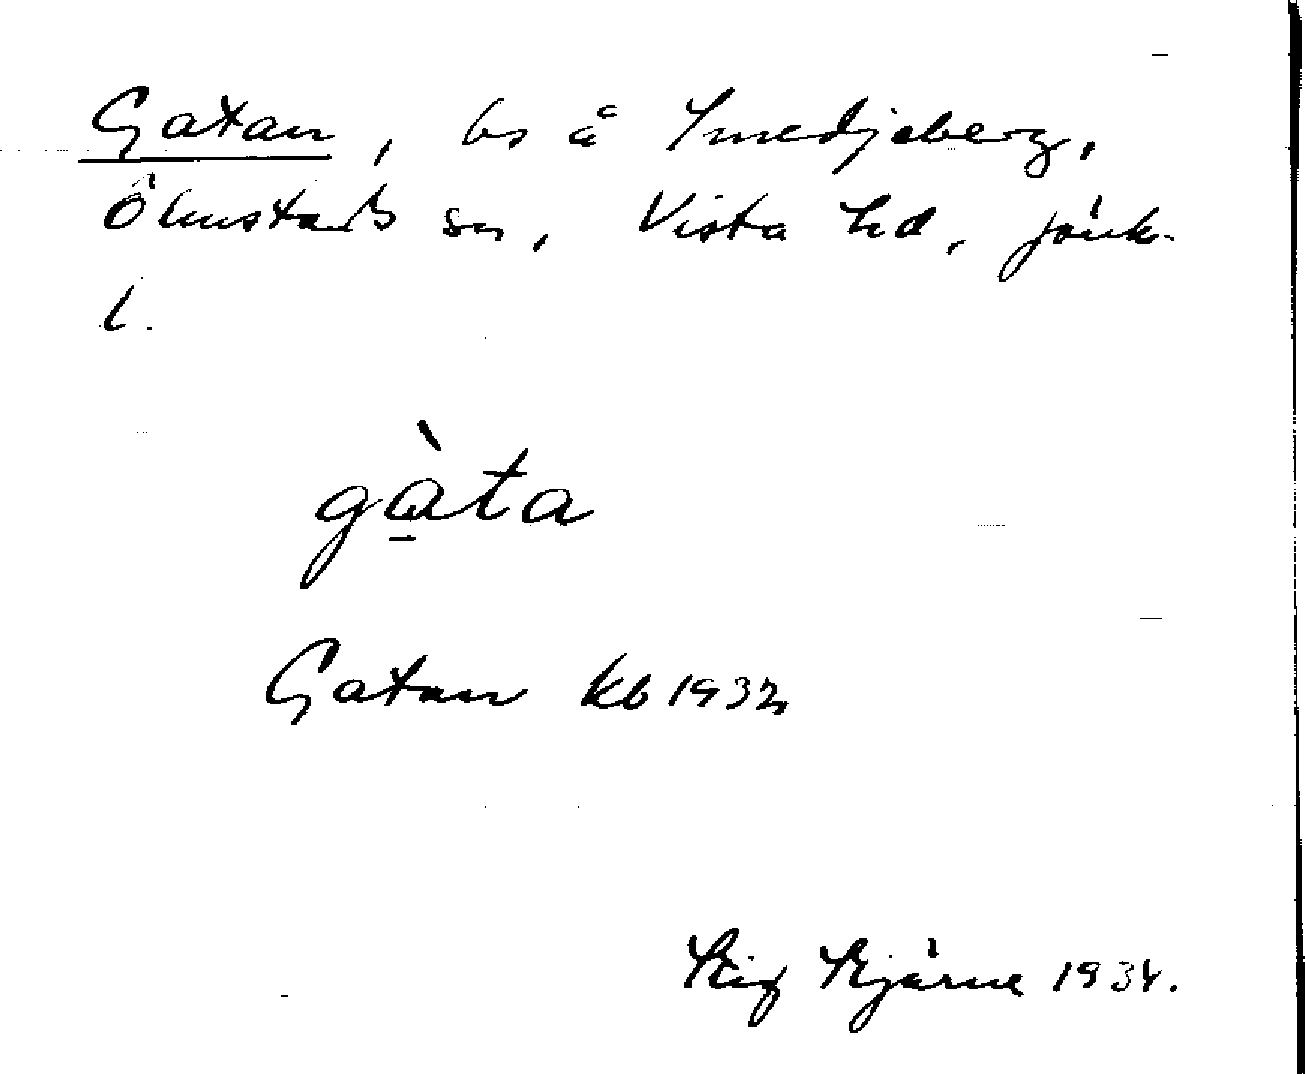 Gatan, bs å Smedjeberg,
Ölmstads sn, Vista hd, Jönk.
l.
gàta
Gatan kb 1932
Stig Stjärne 1934.